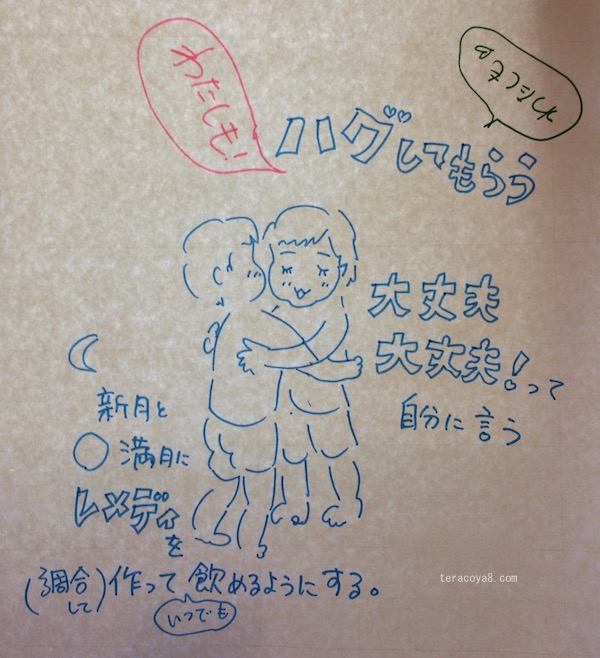 わたしも!
ハグしてもらう
大丈夫
大丈夫!って
自分に言う
新月と
満月に
レメディを
(調合して)作って飲めるようにする。
いつでも
teracoya8.com